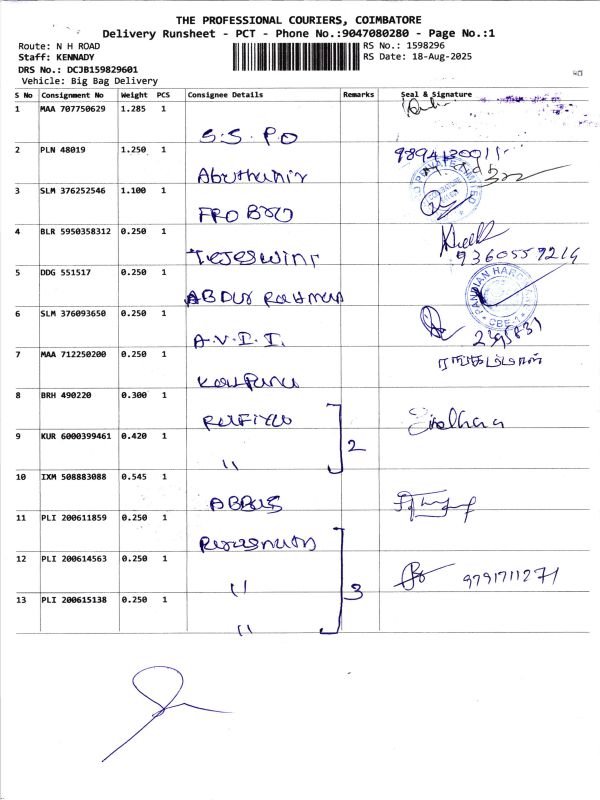 THE PROFESSIONAL COURIERS, COIMBATORE
Delivery Runsheet - PCT - Phone No.:9047080280 - Page No.:1
Route: N H ROAD
RS No.: 1598296
Staff: KENNADY
RS Date: 18-Aug-2025
DRS No.: DCJB159829601
Vehicle: Big Bag Delivery
S No Consignment No Weight PCS Consignee Details Remarks Seal & Signature
1 MAA 707750629 1.285 1
S.S. PO
2 PLN 48019 1.250 1
3 SLM 376252546 1.100 1
4 BLR 5950358312 0.250 1
Tejeswini
9360559214
5 DDG 551517 0.250 1
ABDUR Rahman
6 SLM 376093650 0.250 1
A.V.I.I.
7 MAA 712250200 0.250 1
8 BRH 490220 0.300 1
9 KUR 6000399461 0.420 1
2
"
10 IXM 508883088 0.545 1
ABBAS
11 PLI 200611859 0.250 1
12 PLI 200614563 0.250 1
9791711271
"
3
13 PLI 200615138 0.250 1
"